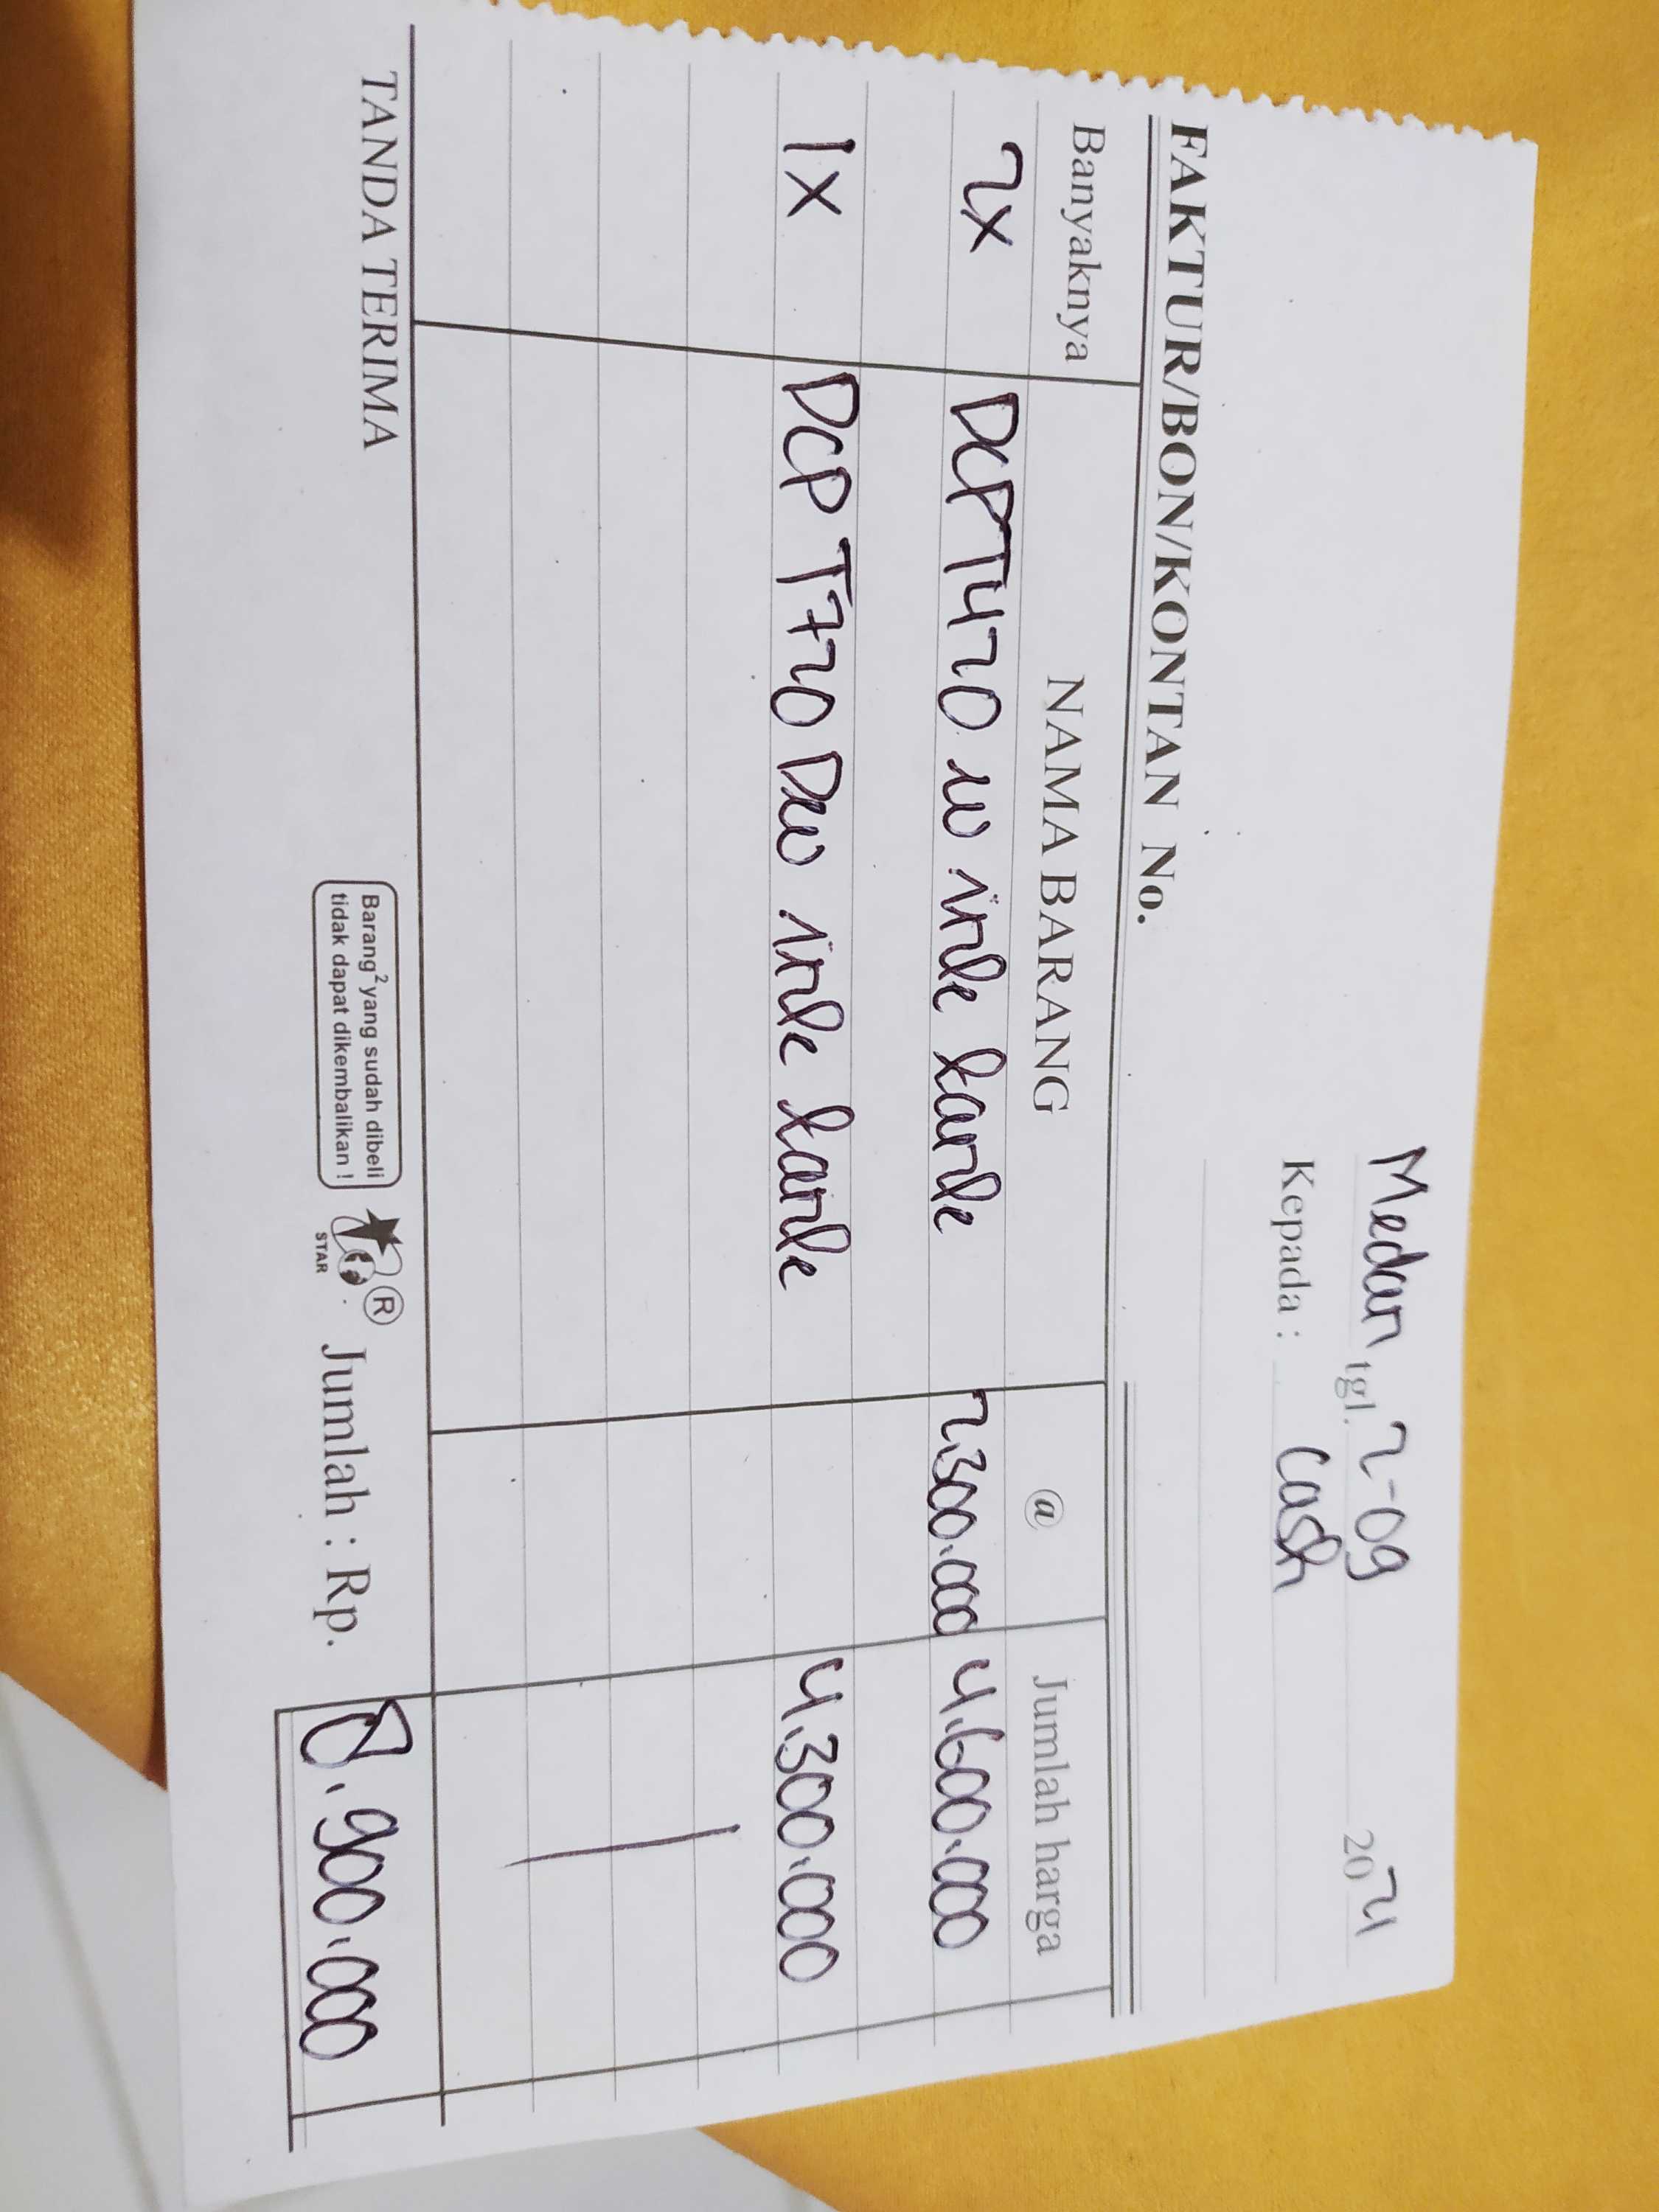 Medan, tgl. 2-09 2024
Kepada : Cash
FAKTUR/BON/KONTAN No.
Banyaknya NAMA BARANG @ Jumlah harga
2X DCPT420 W ink tank 2.300.000 4.600.000
1X DCP T720 DW ink tank 4.300.000
TANDA TERIMA
Barang² yang sudah dibeli
tidak dapat dikembalikan !
STAR
®
Jumlah : Rp. 8.900.000